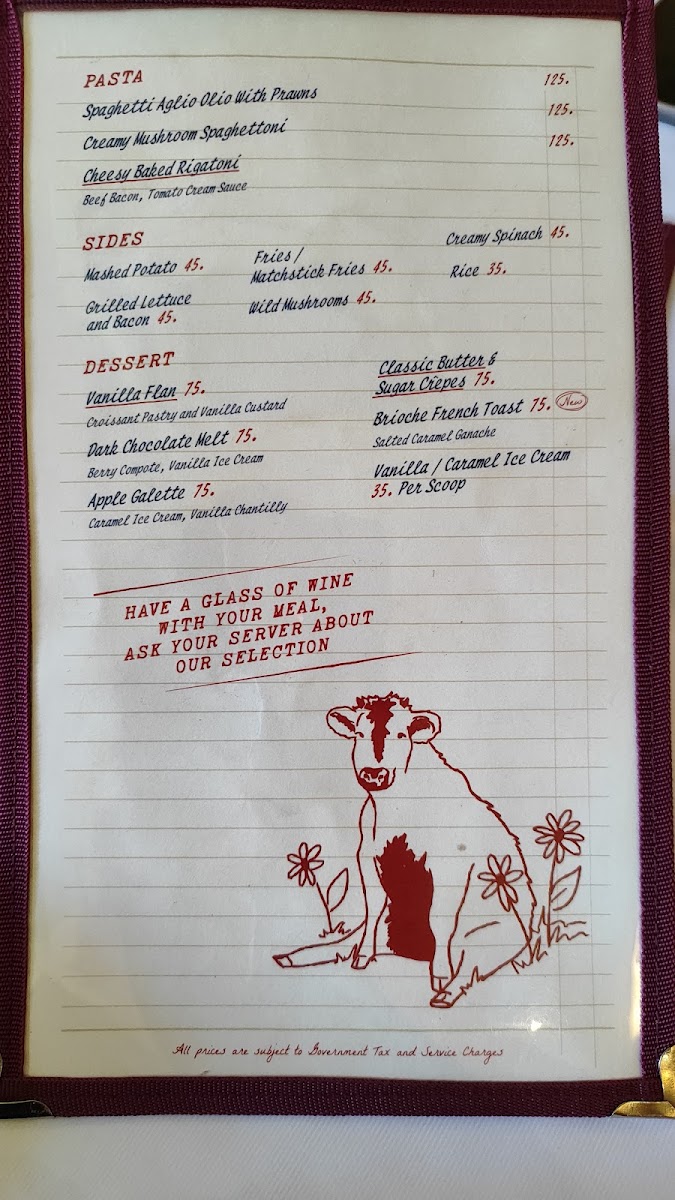 PASTA
Spaghetti Aglio Olio With Prawns 125.
Creamy Mushroom Spaghettoni 125.
Cheesy Baked Rigatoni 125.
Beef Bacon, Tomato Cream Sauce
SIDES
Mashed Potato 45.
Grilled Lettuce
and Bacon 45.
Fries /
Matchstick Fries 45.
Wild Mushrooms 45.
Creamy Spinach 45.
Rice 35.
DESSERT
Vanilla Flan 75.
Croissant Pastry and Vanilla Custard
Dark Chocolate Melt 75.
Berry Compote, Vanilla Ice Cream
Apple Galette 75.
Caramel Ice Cream, Vanilla Chantilly
Classic Butter &
Sugar Crêpes 75.
Brioche French Toast 75. New
Salted Caramel Ganache
Vanilla / Caramel Ice Cream
35. Per Scoop
HAVE A GLASS OF WINE
WITH YOUR MEAL,
ASK YOUR SERVER ABOUT
OUR SELECTION
All prices are subject to Government Tax and Service Charges